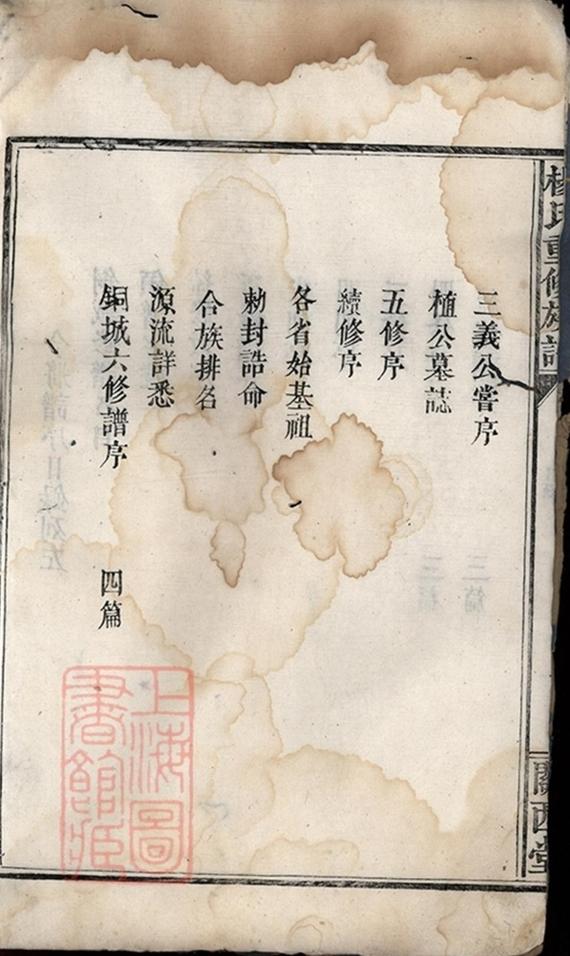 楊氏重修族譜
關西堂
三義公嘗序
植公墓誌
五修序
續修序
各省始基祖
勅封誥命
合族排名
源流詳悉
銅城六修譜序 四篇
上海圖
書館藏